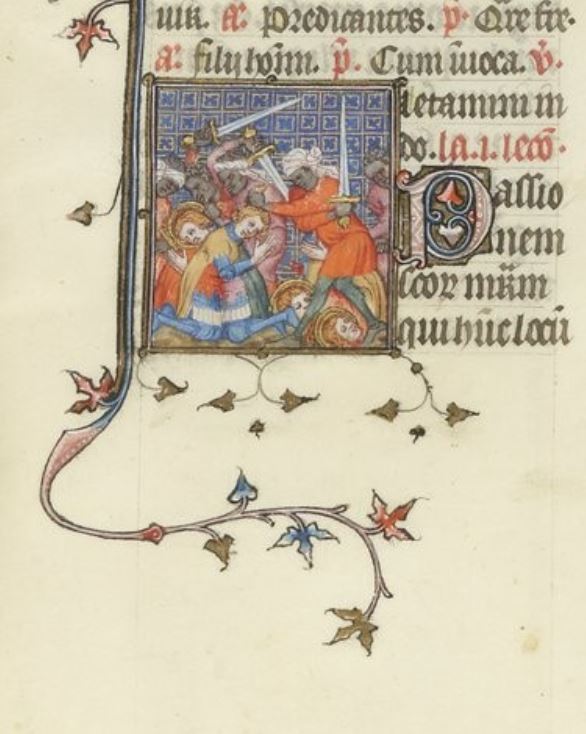 uīr. a: Predicantes. p̄. Q̄re fre-
a: filij hoīm. p̄. Cum īuoca. v̄.
letamini in
do. la. i. lecō.
Passio
nem
scōꝝ mr̄m
qui hūc locū